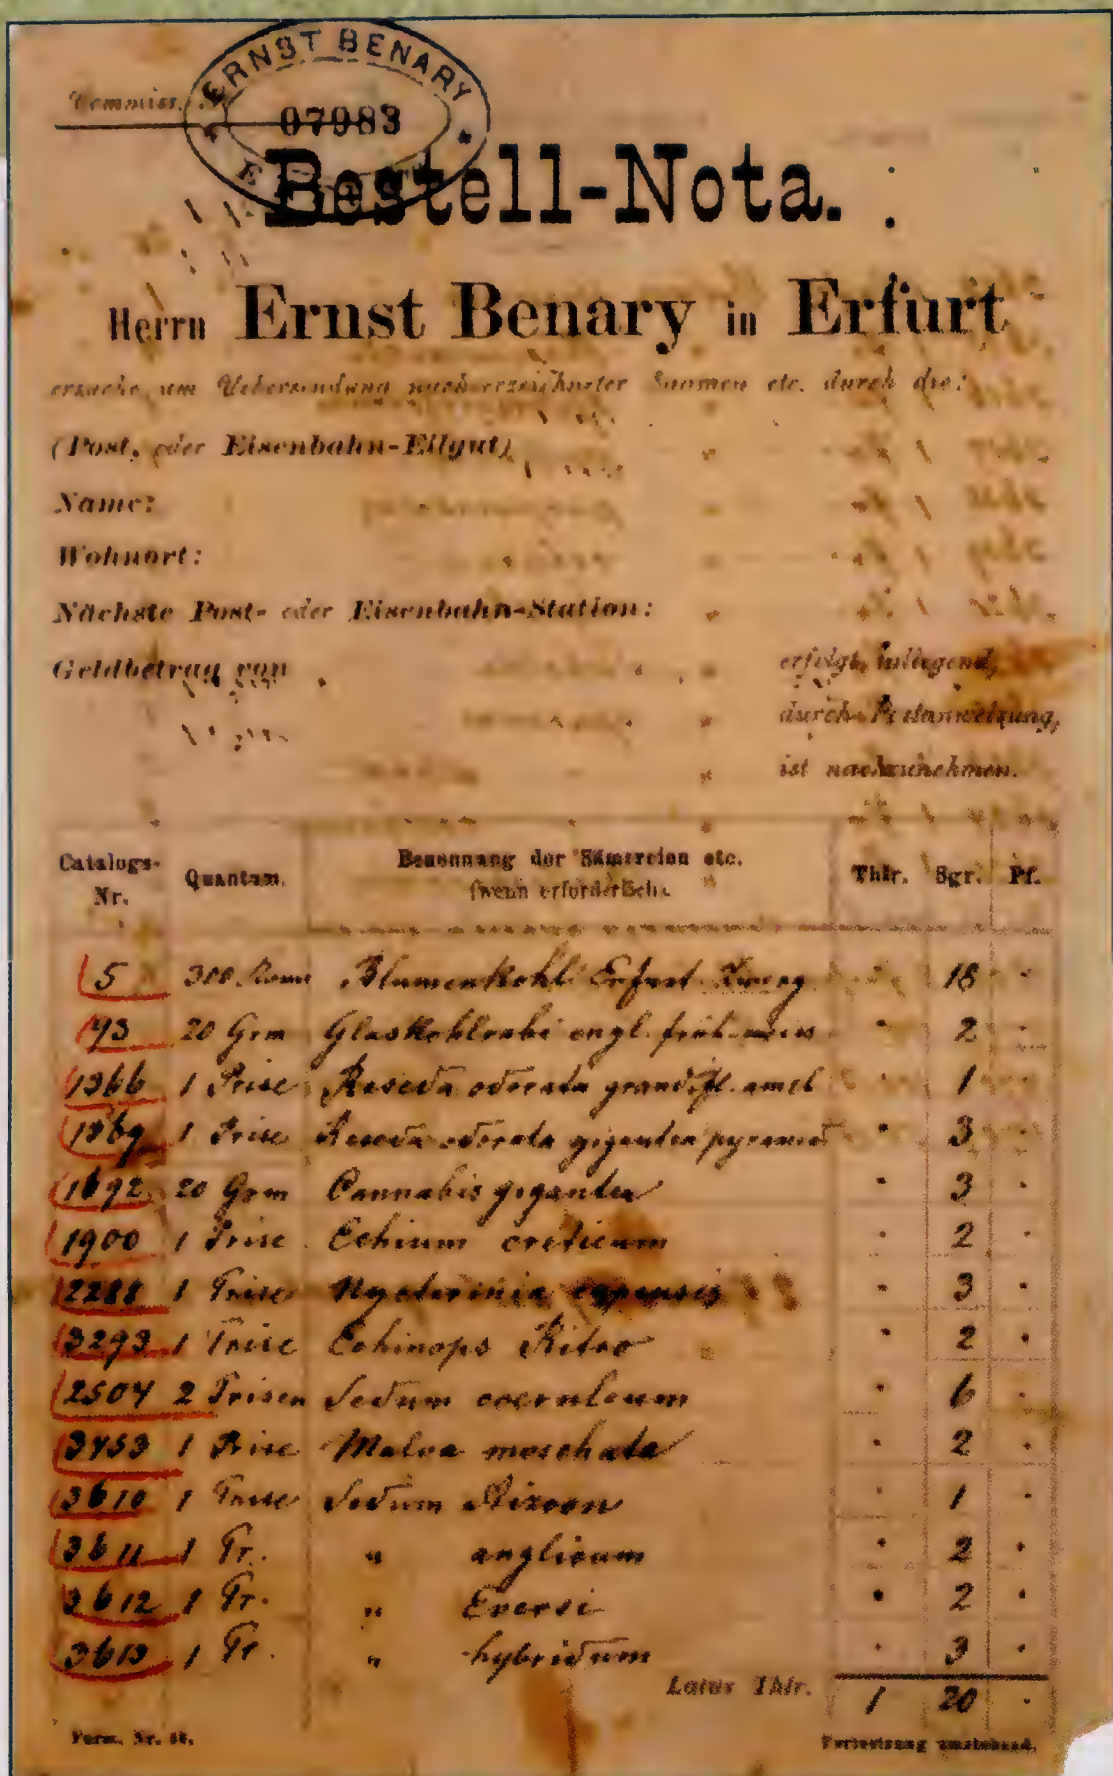 ERNST BENARY
Commiss.
07983
Bestell-Nota.
Herrn Ernst Benary in Erfurt
ersuche um Uebersendung nachverzeichneter Saamen etc. durch die:
(Post, oder Eisenbahn-Eilgut)
Name:
Wohnort:
Nächste Post- oder Eisenbahn-Station:
Geldbetrag von erfolgt inliegend,
durch Postanweisung,
ist nachzunehmen.
Catalogs-Nr. Quantum. Benennung der Sämereien etc. (wenn erforderlich). Thlr. Sgr. Pf.
5 300 Blumenkohl Erfurt. Zwerg 18
93 20 Grm Glaskohlrabi engl. früh. weiss 2
1366 1 Prise Reseda odorata grandifl. amel 1
1369 1 Prise Reseda odorata gigantea pyramid 3
1692 20 Grm Cannabis gigantea 3
1900 1 Prise Echium creticum 2
2288 1 Prise Nycterinia capensis 3
3293 1 Prise Echinops Ritro 2
2504 2 Prisen Sedum coeruleum 6
3453 1 Prise Malva moschata 2
3610 1 Prise Sedum Aizoon 1
3611 1 Pr. " anglicum 2
3612 1 Pr. " Eversi 2
3613 1 Pr. " hybridum 3
Latus Thlr. 1 20
Form. Nr. Fortsetzung umstehend.